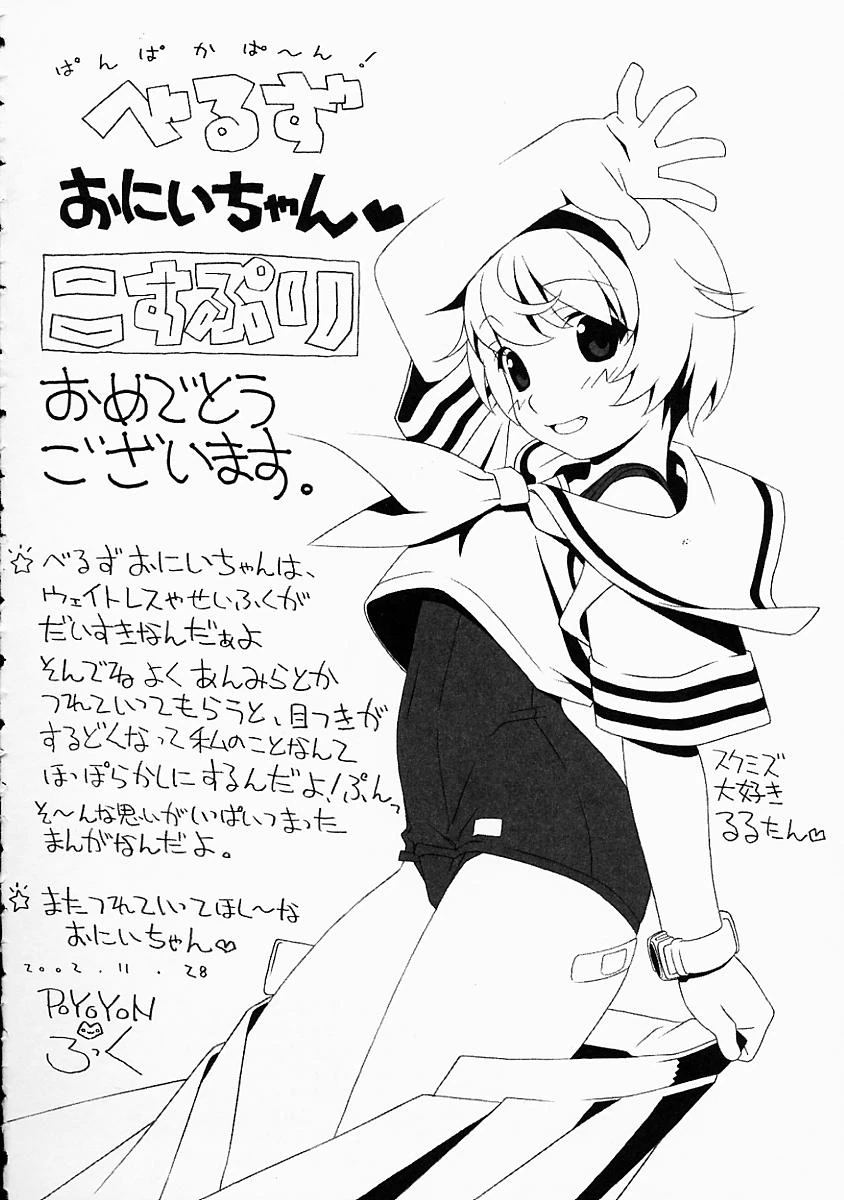 ぱんぱかぱ〜ん!
べるず
おにいちゃん♥
こすぷり
おめでとう
ございます。
☆べるずおにいちゃんは、
ウェイトレスやせいふくが
だいすきなんだぁよ
そんでね よく あんみらとか
つれていってもらうと、目つきが
するどくなって私のことなんて
ほっぽらかしにするんだよ!ぷんっ
そ〜んな思いがいっぱいつまった
まんがなんだよ。
☆またつれていてほし〜な
おにいちゃん♡
2002.11.28
PoYoYoN
ろっく
スクミズ
大好き
るるたん♡